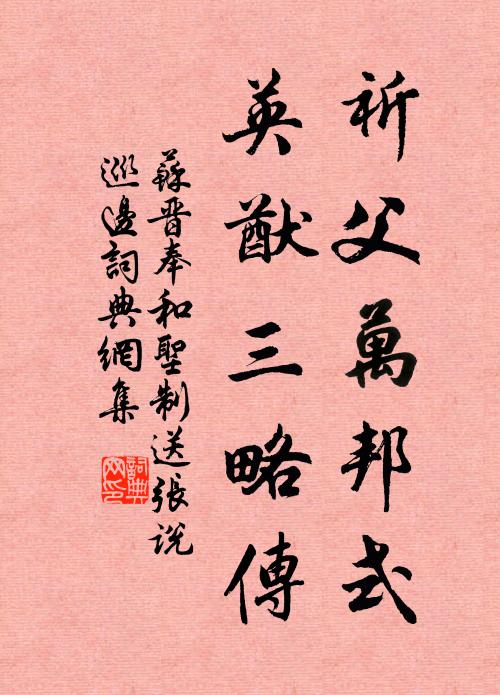 祈父萬邦式
英猷三略傳
蘇晉奉和聖制送張説
巡邊詞典網集
詞典網印